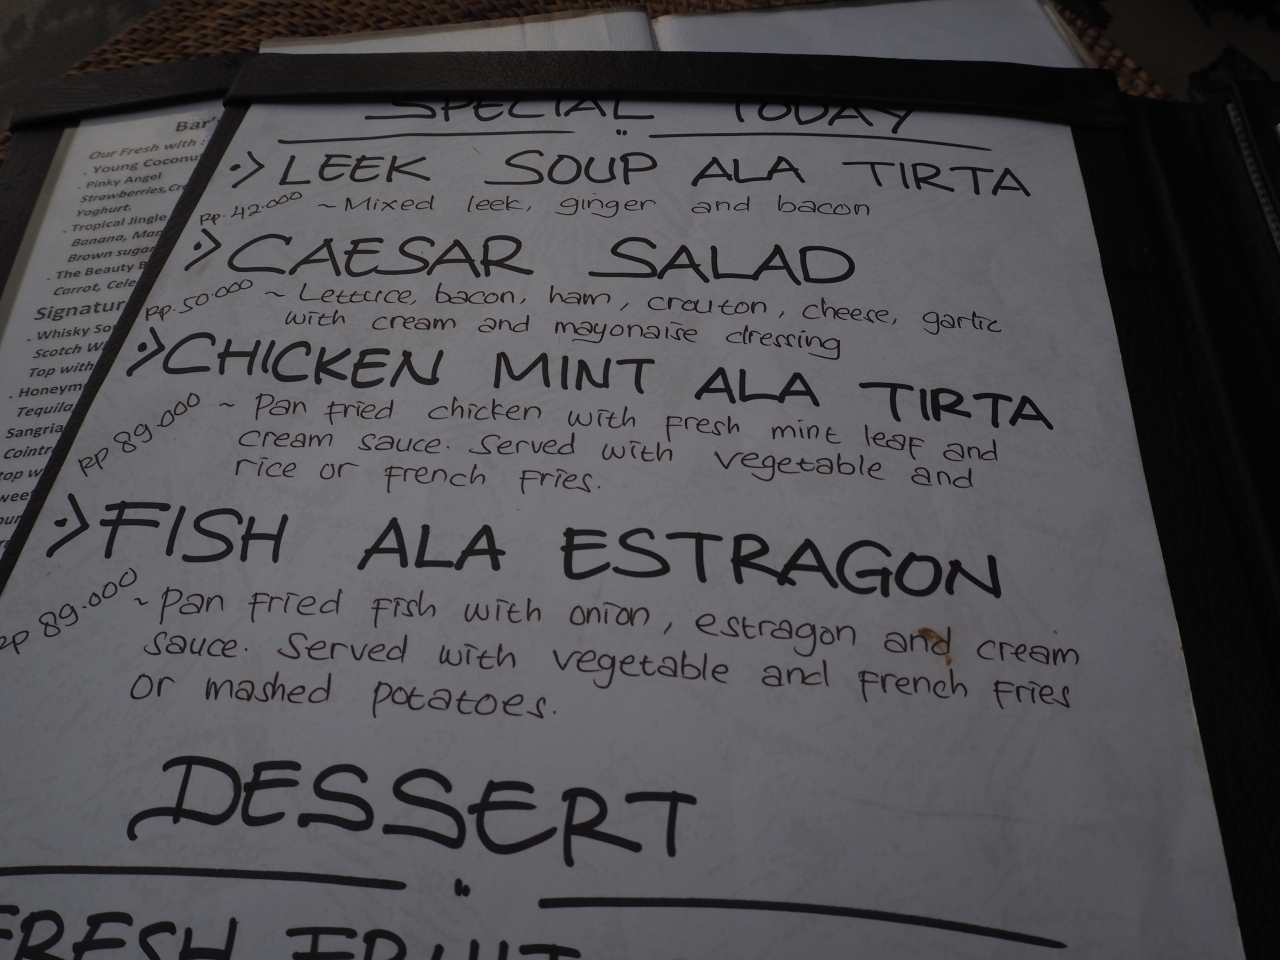 SPECIAL TODAY
LEEK SOUP ALA TIRTA
Rp. 42.000 ~ Mixed leek, ginger and bacon
CAESAR SALAD
Rp. 50.000 ~ Lettuce, bacon, ham, crouton, cheese, garlic
with cream and mayonaise dressing
CHICKEN MINT ALA TIRTA
Rp 89.000 ~ Pan fried chicken with fresh mint leaf and
cream sauce. Served with vegetable and
rice or french fries.
FISH ALA ESTRAGON
Rp 89.000 ~ Pan fried fish with onion, estragon and cream
sauce. Served with vegetable and french fries
or mashed potatoes.
DESSERT
FRESH FRUIT
Bar's
Our Fresh with :
. Young Coconu
. Pinky Angel
Strawberries,
Yoghurt.
. Tropical Jingle
Banana,
Brown sugar
. The Beauty
Carrot,
Signatur
. Whisky
Scotch
Top with
. Honeym
Tequila
Sangria
Cointr